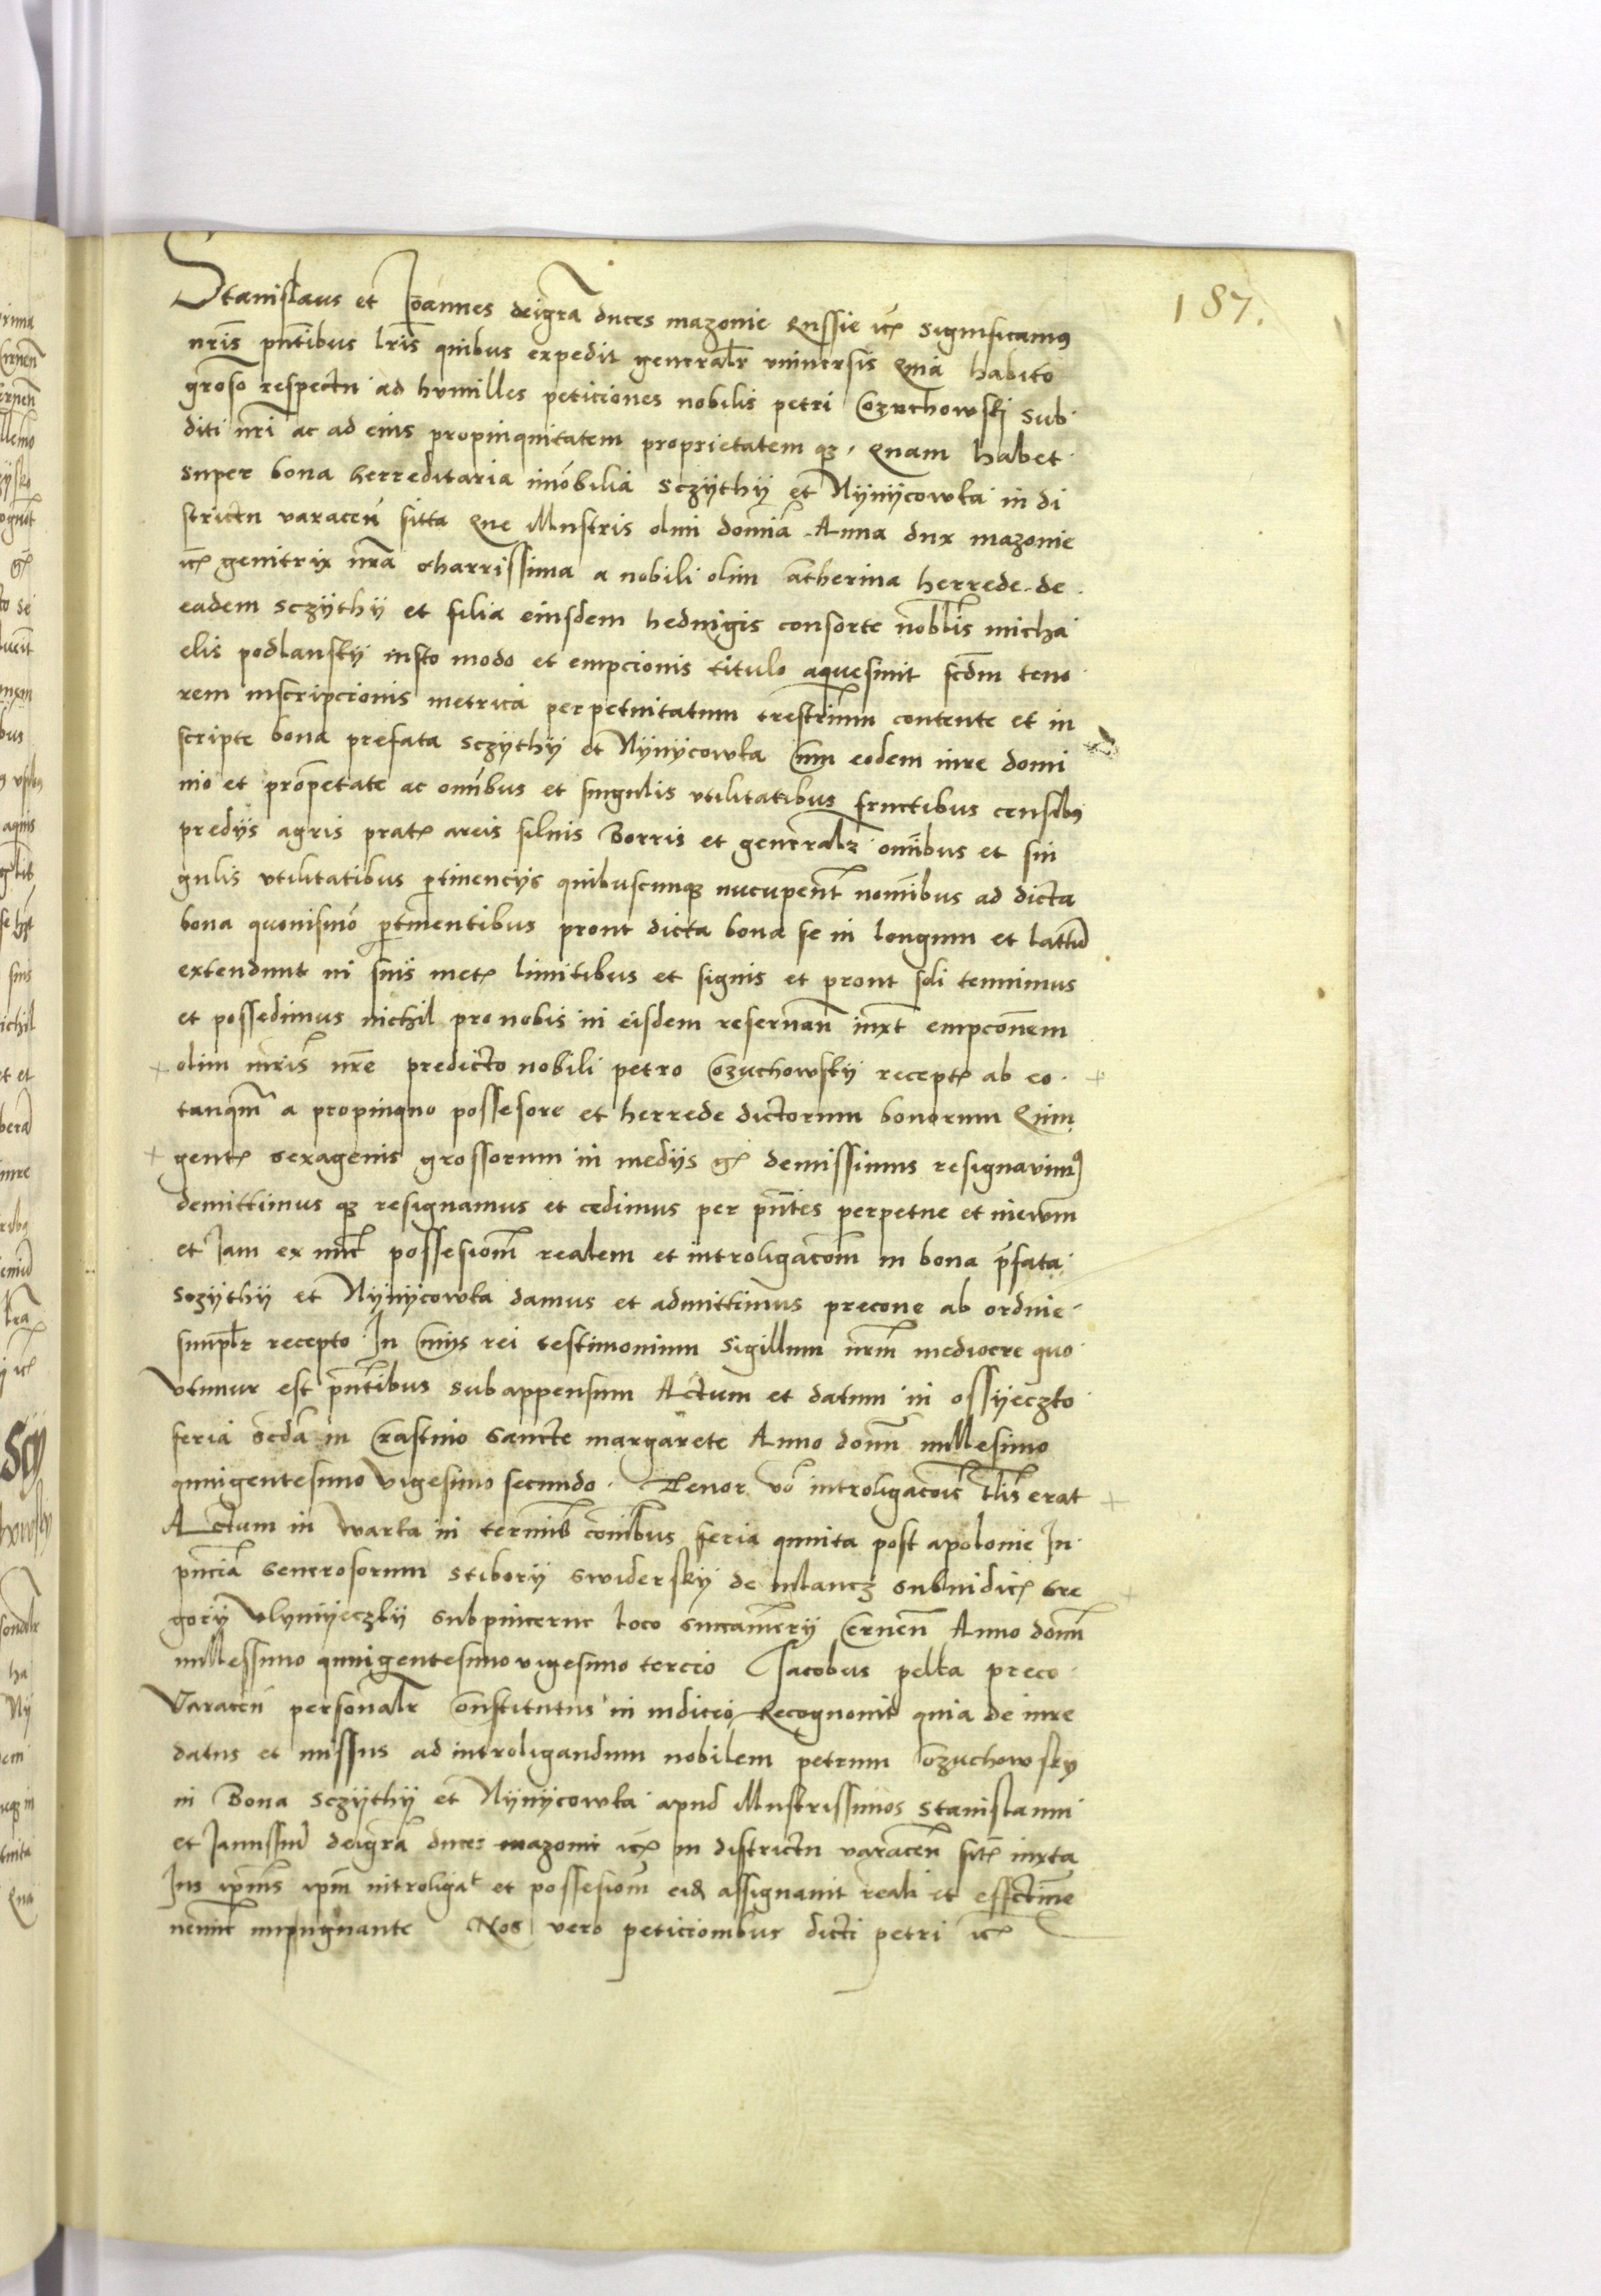 187.
Stanislaus et Joannes deigra duces mazouie Russie etc significamus
nris pntibus lris quibus expedit generalr vniuersis Quia habito
groso respectu ad humilles peticiones nobilis petri Cozuchowski sub
diti nri ac ad eius propinquitatem proprietatem q3 Quam habet
super bona herreditaria imobilia Sczythy et Nynycowka in di
strictu varacen sitta Que illustris olim domia Anna dux mazouie
etc genitrix nra charrissima a nobili olim catherina herrede de
eadem Sczythy et filia eiusdem heduigis consorte noblis micha
elis podlansky iusto modo et empcionis titulo aquesiuit scdm teno
rem inscripcionis metrica perpetuitatum trestrium contente et in
scripte bona prefata Sczythy et Nynycowka Cum eodem iure domi
nio et propetate ac omibus et singulis vtilitatibus fructibus censibus
predijs agris prat areis siluis Borris et generalr omibus et sin
gulis vtilitatibus ptinencijs quibuscunq3 nucupent nomibus ad dicta
bona quouismo ptinentibus prout dicta bona se in longum et lattum
extendunt in suis met limitibus et signis et prout soli tenuimus
et possedimus nichil pro nobis in eisdem reseruan iuxt empconem
olim mris nre predicto nobili petro Cozuchowsky recept ab eo
tanqm a propinquo possesore et herrede dictorum bonorum Quin
gent sexagenis grossorum in medijs gr demissimus resignauimus
demittimus q3 resignamus et cedimus per pntes perpetue et in ewm
et Jam ex nuc possesionm realem et introligacom in bona pfata
Sczythy et Nynycowka damus et admittimus precone ab ordine
simplr recepto In Cuius rei testimonium Sigillum nrm mediocre quo
vtimur est pntibus subappensum Actum et datum in ossyeczko
feria scda in Crastino Sancte margarete Anno domi millesimo
quingentesimo vigesimo secundo Tenor vo introligacois tlis erat
Actum in warka in termis coibus feria quinta post apolonie In
pncia Generosorum Stibory Swidersky de mlancz subiudic Gre
gory Vlynyeczky Subpincerne loco Succamery Cernen Anno domi
millessimo quingentesimo vigesimo tercio Jacobus pelka preco
Varacen personalr Constitutus in iudicio Recognouit quia de iure
datus et missus ad introligandum nobilem petrum Cozuchowsky
in Bona Sczythy et Nynycowka apud illustrissimos Stanislaum
et Janussium deigra duces mazouie etc in districtu varacen sit iuxta
Jus ipius ipm introligat et possesionm eid assignauit reali et effectiue
nemine impugnante Nos vero peticionibus dicti petri etc